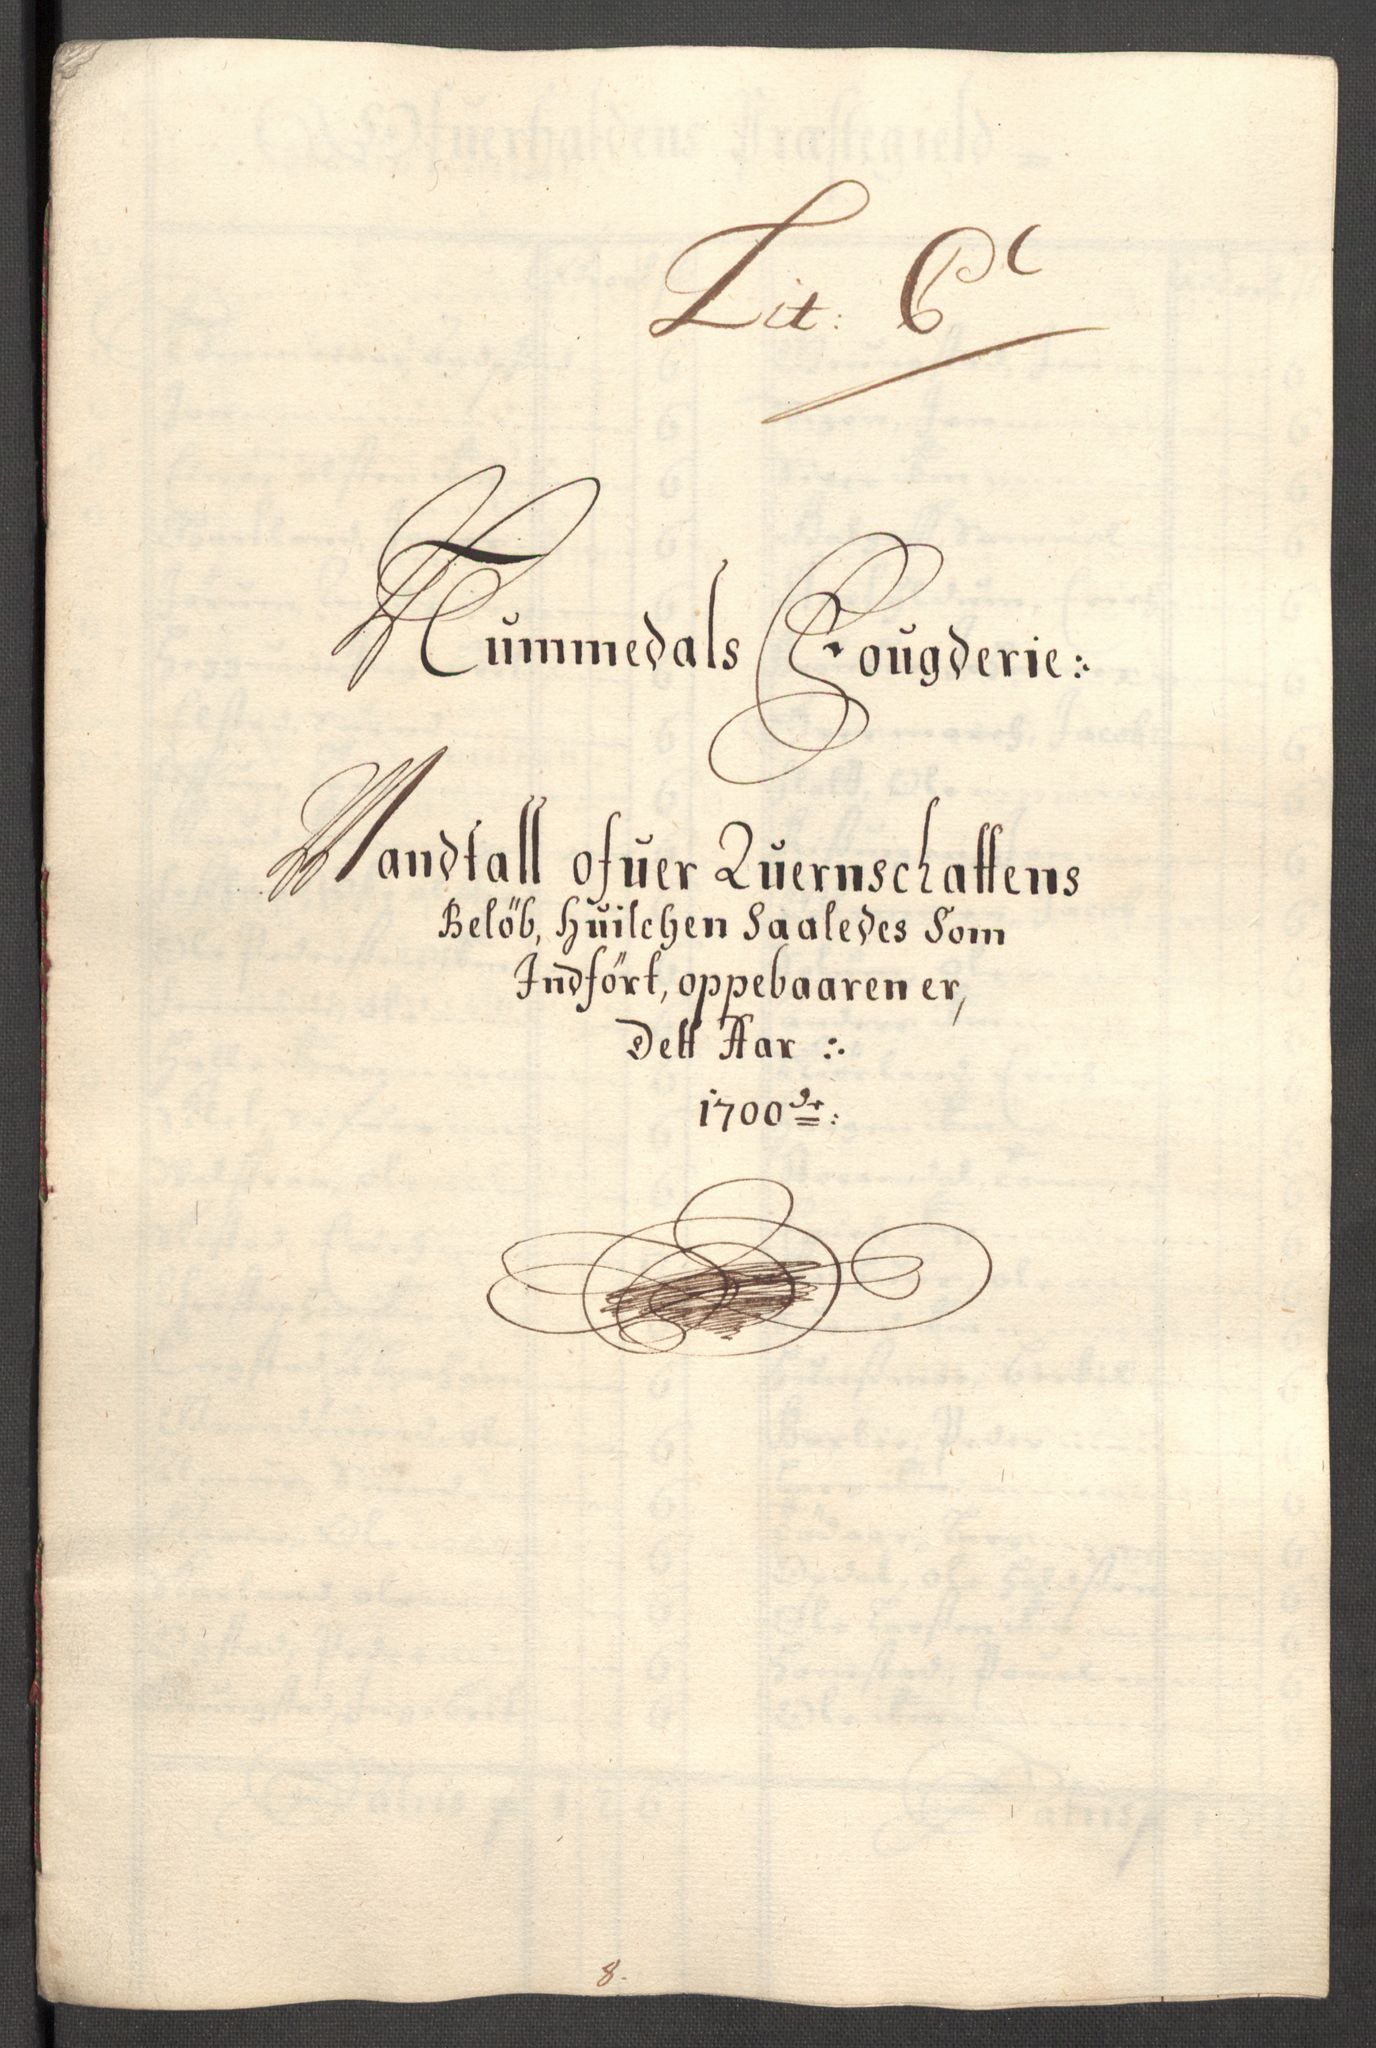 Lit: C
Nummedals Fougderie:
Mandtall ofuer Quernschattens
Belöb, Huilchen Saaledes Som
Indfört, oppebaaren er,
Dett Aar :
1700 de:
8.